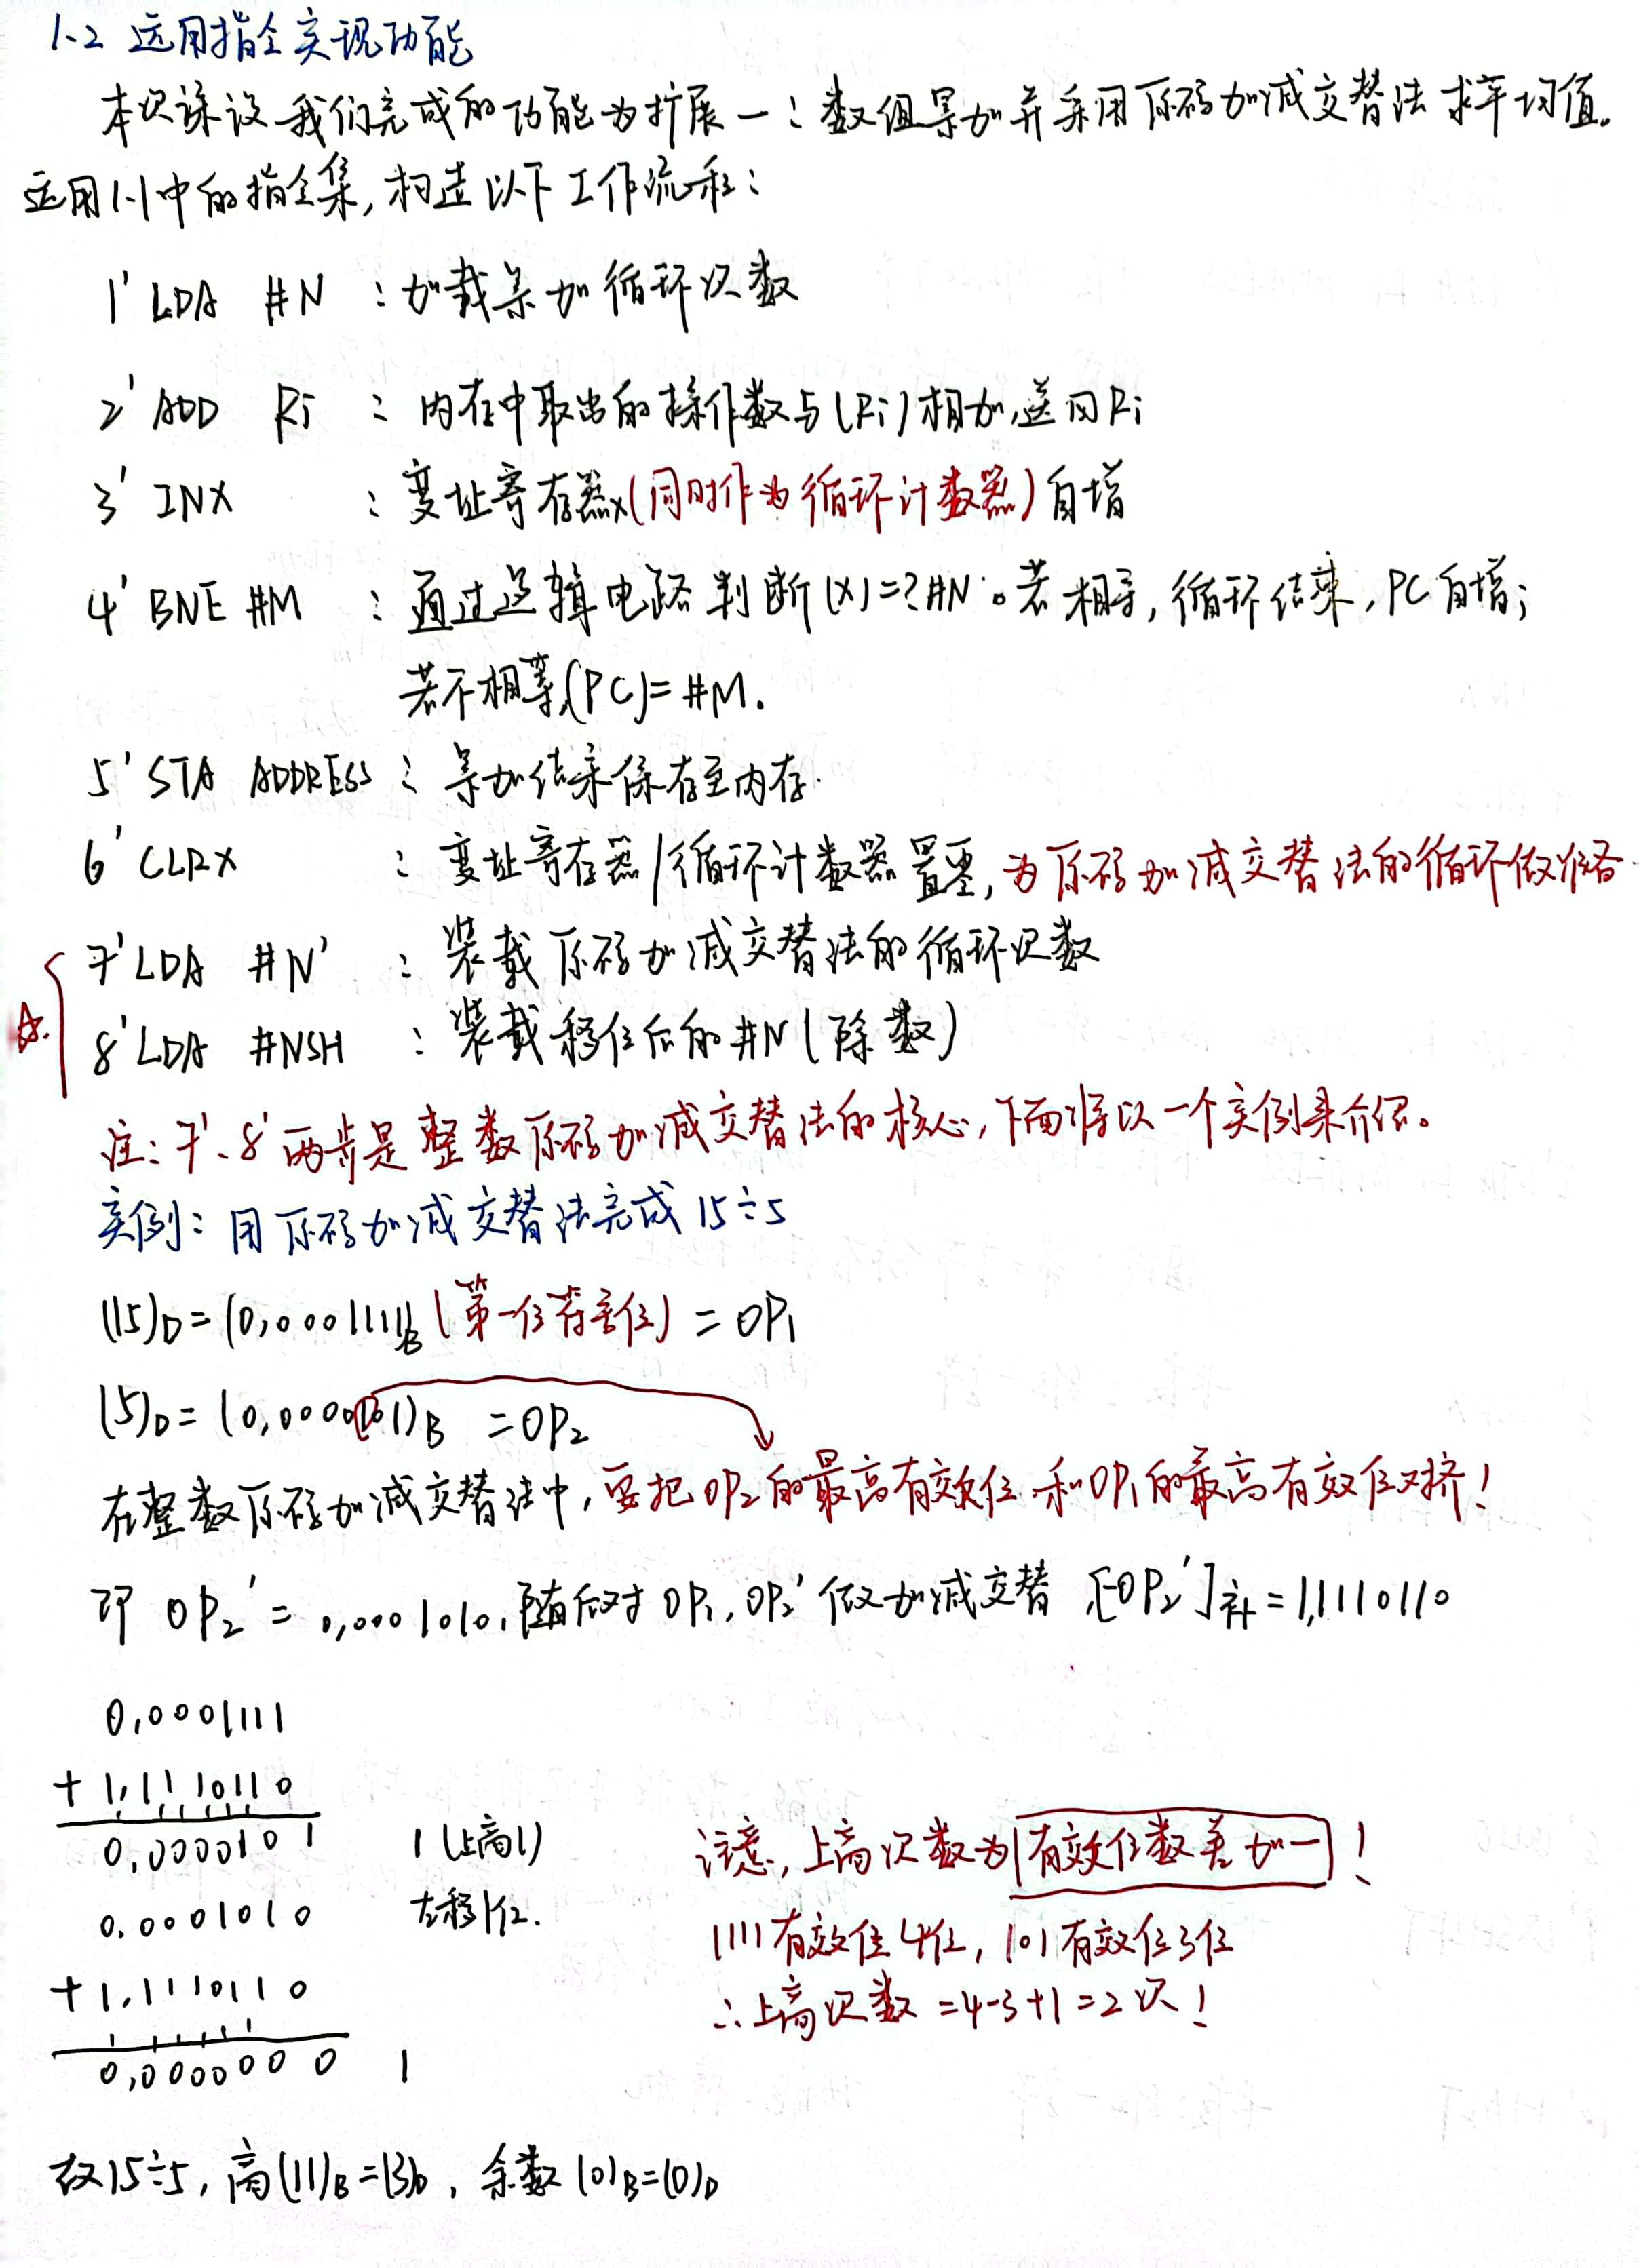 1.2 运用指令实现功能
本次课设我们完成的功能为扩展一：数组累加并采用原码加减交替法求平均值。
运用1.1中的指令集，构造以下工作流程：
1' LDA #N ：加载累加循环次数
2' ADD Ri ：内存中取出的操作数与(Ri)相加，送回Ri
3' INX ：变址寄存器X(同时作为循环计数器)自增
4' BNE #M ：通过逻辑电路判断(X)=?#N。若相等，循环结束，PC自增；
若不相等，(PC)=#M.
5' STA ADDRESS ：累加结果保存至内存.
6' CLRX ：变址寄存器/循环计数器置零，为原码加减交替法的循环做准备
7' LDA #N' ：装载原码加减交替法的循环次数
8' LDA #NSH ：装载移位后的#N(除数)
注：7'、8'两步是整数原码加减交替法的核心，下面将以一个实例来介绍。
实例：用原码加减交替法完成 15÷5
(15)D=(0,0001111)B (第一位符号位) = OP1
(5)D=(0,0000101)B =OP2
在整数原码加减交替法中，要把OP2的最高有效位和OP1的最高有效位对齐！
即 OP2' = 0,0001010，随后对OP1，OP2'做加减交替，[-OP2']补=1,1110110
0,0001111
+1,1110110
0,0000101 1(上商1)
0,0001010 左移1位.
+1,1110110
0,0000000 1
注意，上商次数为 有效位数差加一！
1111有效位4位，101有效位3位
∴上商次数=4-3+1=2次！
故15÷5，商(11)B=(3)D，余数(0)B=(0)D